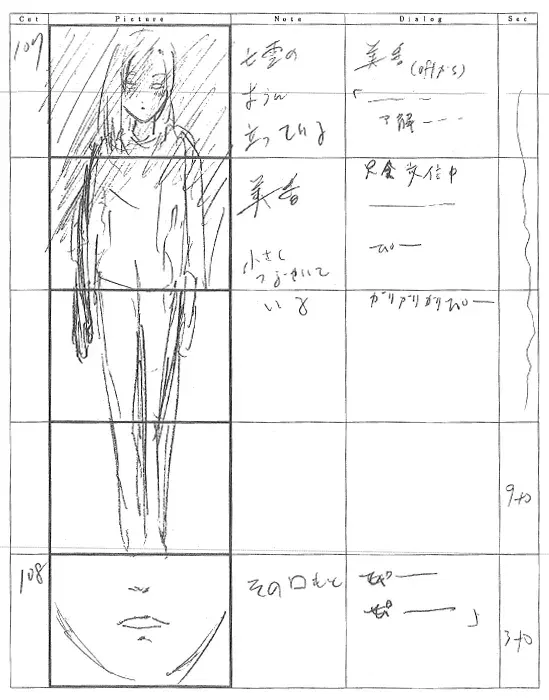 Cut Picture Note Dialog Sec
107
亡霊の
ように
立っている
美香
小さく
つぶやいて
いる
美香 (offから)
「
了解
交信中
ぴー
ガリガリガリぴー
9+0
108
その口もと
」
3+0